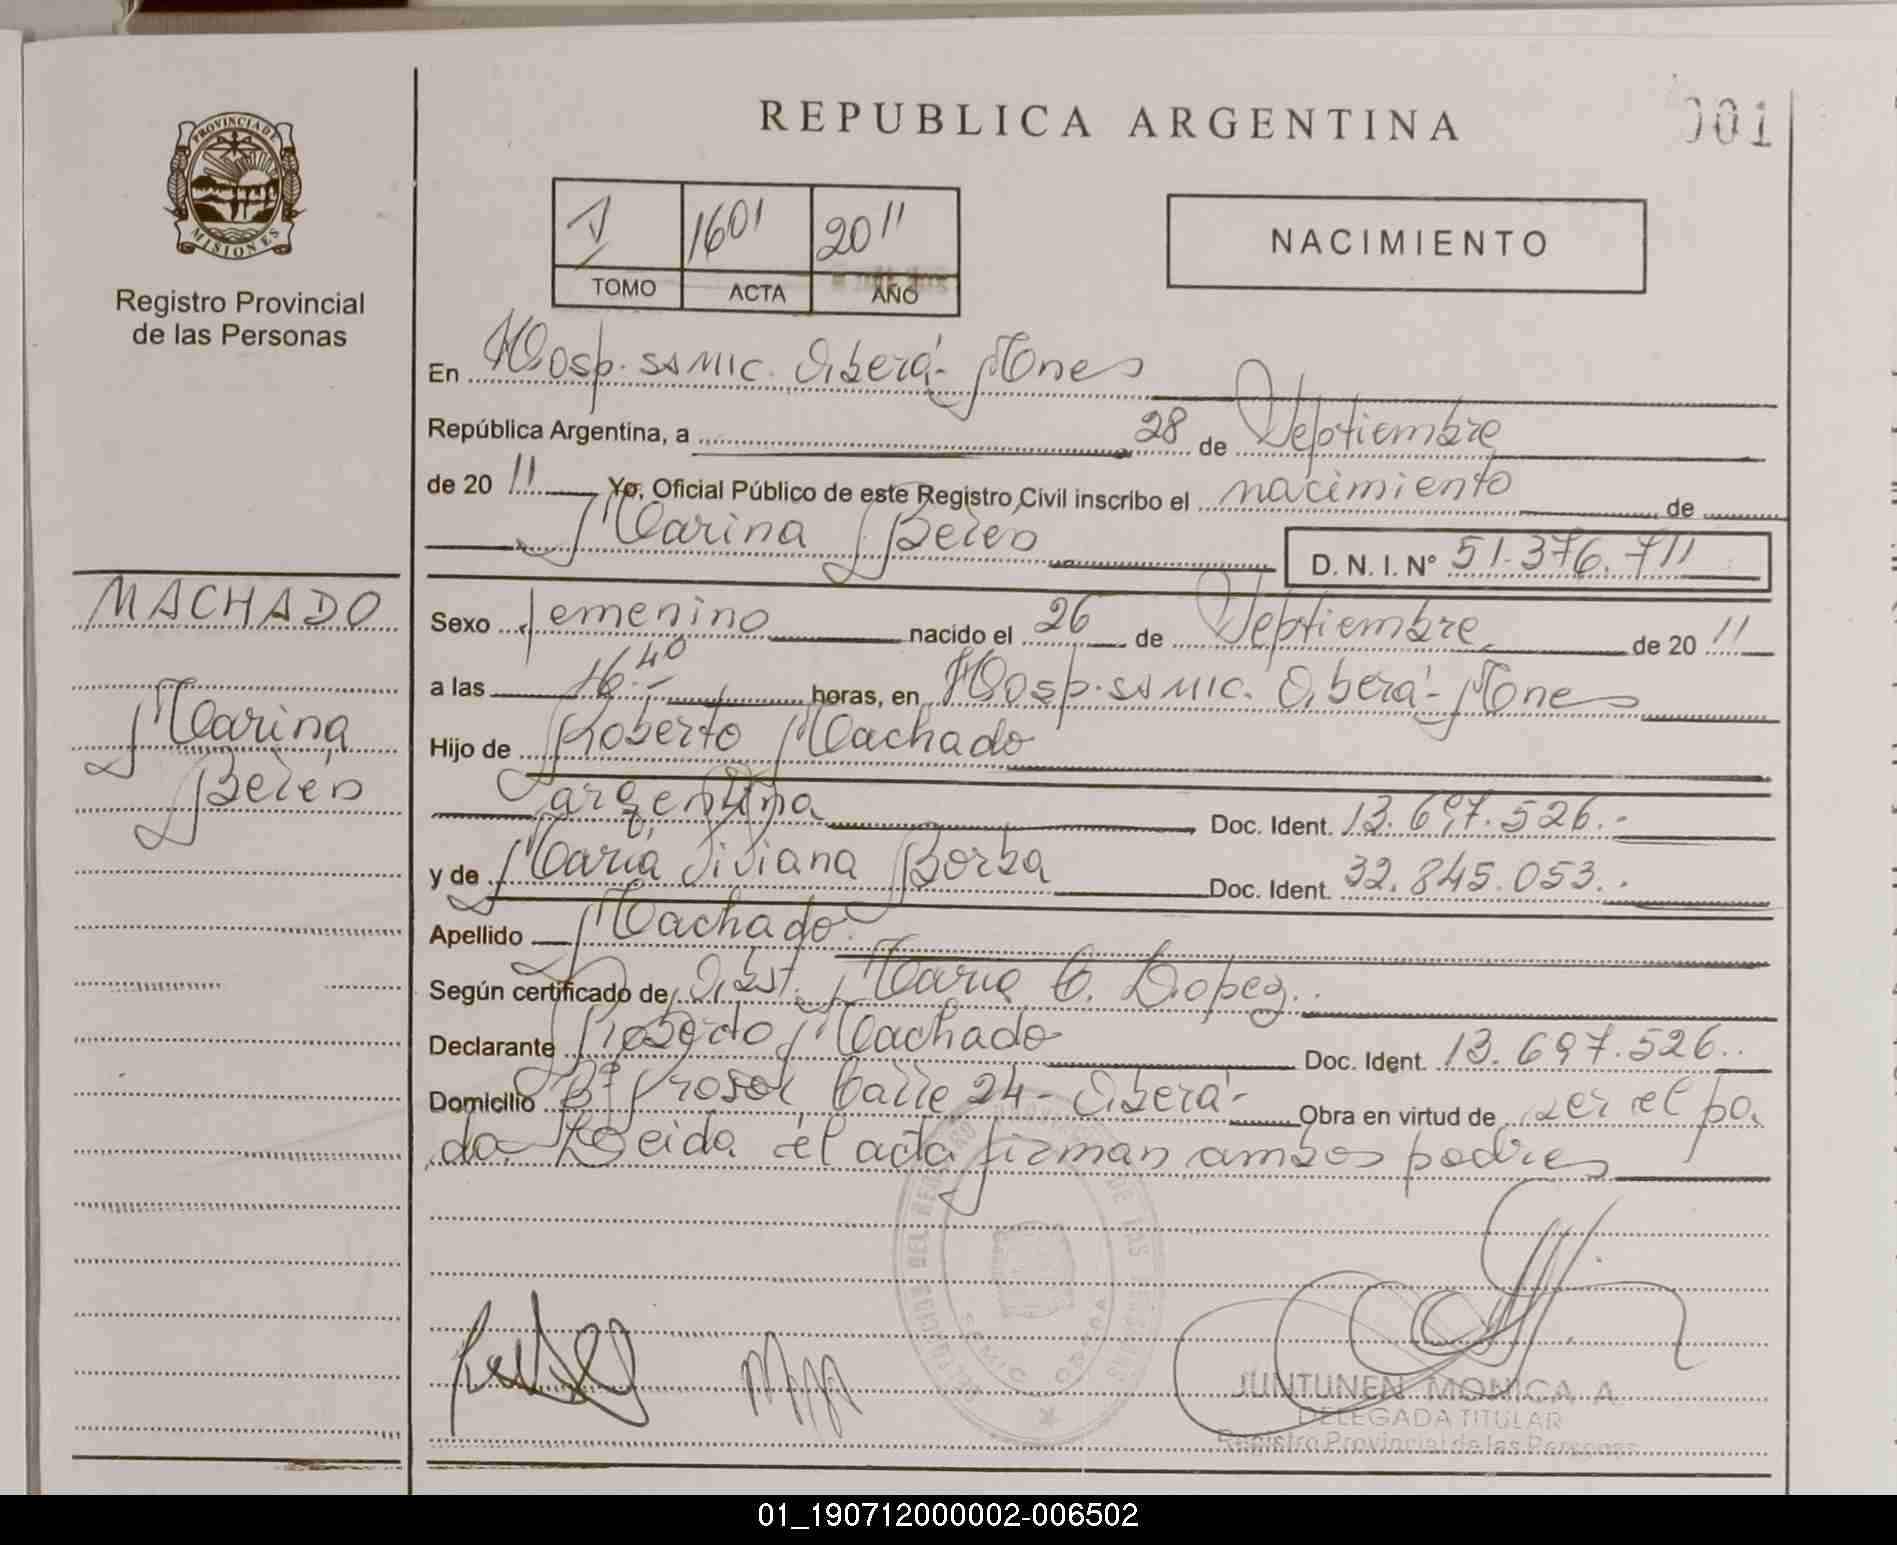 REPUBLICA ARGENTINA
001
PROVINCIA DE
MISIONES
Registro Provincial
de las Personas
1 1601 2011
TOMO ACTA AÑO
NACIMIENTO
En Hosp. SAMIC. Oberá - Mnes
República Argentina, a 28 de Septiembre
de 20 11 Yo, Oficial Público de este Registro Civil inscribo el nacimiento de
Marina Belén
D. N. I. Nº 51.376.711
MACHADO
Marina
Belén
Sexo femenino nacido el 26 de Septiembre de 20 11
a las 16.40 horas, en Hosp. SAMIC. Oberá - Mnes
Hijo de Roberto Machado
argentina Doc. Ident. 13.697.526.-
y de Maria Viviana Borba Doc. Ident. 32.845.053..
Apellido Machado
Según certificado de Obst. Maria C. Lopez..
Declarante Roberto Machado Doc. Ident. 13.697.526..
Domicilio Bº Prosol Calle 24 - Oberá - Obra en virtud de ser el pa.
dre. Leida el acta firman ambos padres
JUNTUNEN MONICA A.
DELEGADA TITULAR
Registro Provincial de las Personas
01_190712000002-006502